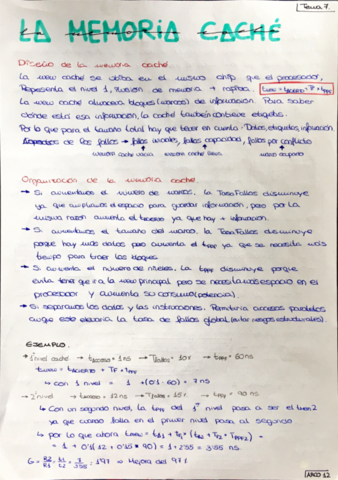 Tema 7.
LA MEMORIA CACHÉ
Diseño de la memoria caché.
La mem caché se ubica en el mismo chip que el procesador,
Representa el nivel 1, Ilusión de memoria + rápida. tMEM = tACIERTO + TF + tPF
La mem caché almacena bloques (marcos) de información. Para saber
dónde está esa información, la caché también contiene etiquetas.
Por lo que para el tamaño total hay que tener en cuenta: Datos, etiquetas, información
de los fallos → fallos iniciales, fallos capacidad, fallos por conflicto
memoria caché vacía memoria caché llena marco ocupado
Organización de la memoria caché.
→ Si aumentamos el número de marcos, la Tasa Fallos disminuye
ya que ampliamos el espacio para guardar información, pero por la
misma razón aumenta el tacierto ya que hay + información.
→ Si aumentamos el tamaño del marco, la Tasa Fallos disminuye
porque hay más datos pero aumenta el tPF ya que se necesita más
tiempo para traer los bloques.
→ Si aumenta el número de niveles, la tPF disminuye porque
evita tener que ir a la mem principal pero se necesita más espacio en el
procesador y aumenta su consumo (potencia).
→ Si separamos los datos y las instrucciones. Permitiría accesos paralelos
aunque esto elevaría la tasa de fallos global (evitar riesgos estructurales).
EJEMPLO.
→ 1º nivel caché → tacierto = 1 ns → Tfallos = 10% → tPF = 60 ns
tMEM = tACIERTO + TF · tPF
↳ con 1 nivel = 1 + (0'1 · 60) = 7 ns
→ 2º nivel → tacierto = 12 ns → Tfallos = 15% → tPF = 90 ns
↳ Con un segundo nivel, la tPF del 1º nivel pasa a ser el tMEM2
ya que cuando falla en el primer nivel pasa al segundo
↳ por lo que ahora tMEM = tA1 + TF1 · (tA2 + TF2 · tPF2)
= 1 + 0'1 (12 + 0'15 · 90) = 1 + 2'55 = 3'55 ns.
= 1'97 → Mejora del 97%
ARCO 12